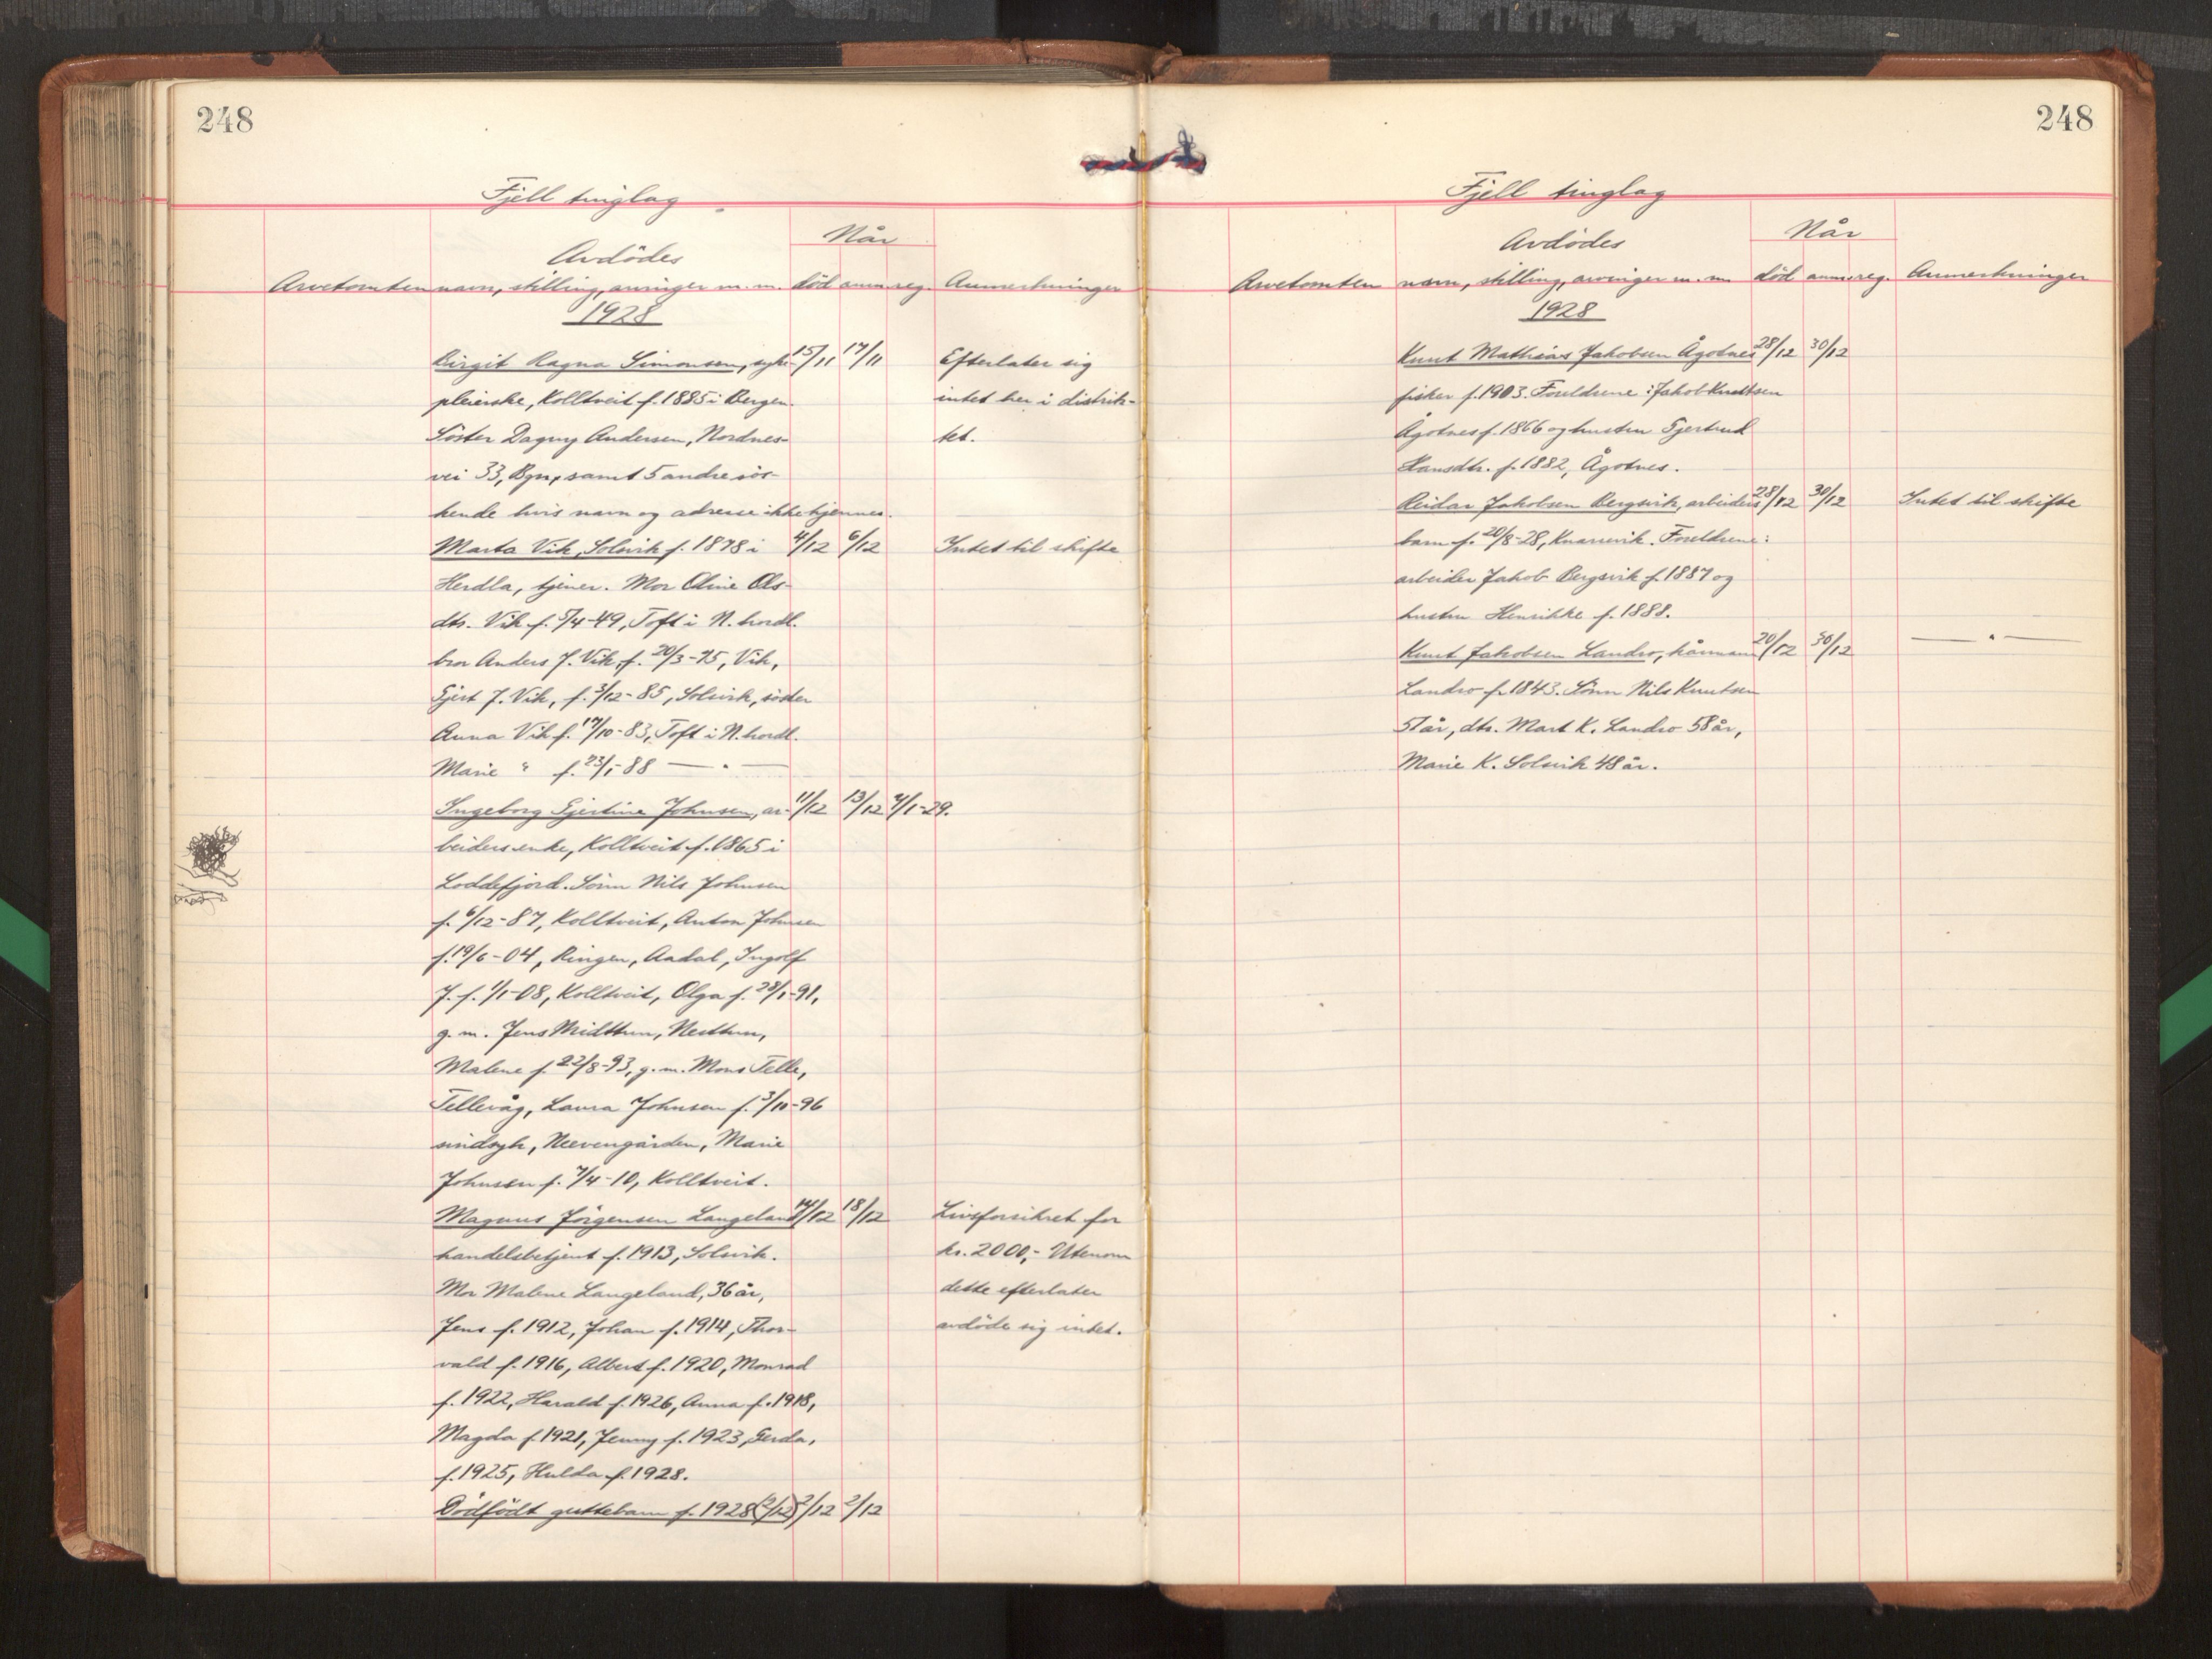 248
Fjell tinglag
Når
Avdødes
Arvetomten navn, stilling, arvinger m. m. død anm. reg. Anmerkninger
1928
Birgit Ragna Simonsen, syke- 15/11 17/11 Efterlater sig
pleierske, Kolltveit f. 1885 i Bergen. intet her i distrik-
Söster Dagny Andersen, Nordnes- tet.
vei 33, Bgn, samt 5 andre sös-
kende hvis navn og adresse ikke kjennes.
Marta Vik, Solsvik f. 1878 i 4/12 6/12 Intet til skifte
Herdla, tjener. Mor Oline Ols-
dtr. Vik f. 5/4-49, Toft i N. hordl.
bror Anders J. Vik, f. 20/3-75, Vik,
Gjert J. Vik, f. 3/12-85, Solsvik, söster
Anna Vik f. 17/10-83, Toft i N. hordl.
Marie " f. 23/1-88 — " —
Ingeborg Gjertine Johnsen, ar- 11/12 13/12 4/1-29.
beiders enke, Kolltveit f. 1865 i
Loddefjord. Sönn Nils Johnsen
f. 6/12-87, Kolltveit, Anton Johnsen
f. 19/6-04, Ringen, Aadal, Ingolf
J. f. 1/1-08, Kolltveit, Olga f. 28/1-91,
g. m. Jens Midttun, Nesttun,
Malene f. 22/8-93, g. m. Mons Telle,
Tellevåg, Laura Johnsen f. 3/10-96
sindsyk, Neevengården, Marie
Johnsen f. 7/4-10, Kolltveit.
Magnus Jörgensen Langeland 14/12 18/12 Livsforsikret for
handelsbetjent f. 1913, Solsvik. kr. 2000,- Utenom
Mor Malene Langeland, 36 år, dette efterlater
Jens f. 1912, Johan f. 1914, Thor- avdöde sig intet.
vald f. 1916, Albert f. 1920, Monrad
f. 1922, Harald f. 1926, Anna f. 1918,
Magda f. 1921, Jenny f. 1923, Gerda,
f. 1925, Hulda f. 1928.
Dödfödt guttebarn f. 1928 (2/12) 2/12 2/12
248
Fjell tinglag
Når
Avdødes
Arvetomten navn, stilling, arvinger m. m. død anm. reg. Anmerkninger
1928
Knut Mathias Jakobsen Ågotnes 28/12 30/12
fisker f. 1903. Foreldrene: Jakob Knutsen
Ågotnes f. 1866 og hustru Gjertrud
Hansdtr. f. 1882, Ågotnes.
Reidar Jakobsen Bergsvik, arbeiders 28/12 30/12 Intet til skifte
barn f. 20/8-28, Knarrevik. Foreldrene:
arbeider Jakob Bergsvik f. 1887 og
hustru Henrikke f. 1888.
Knut Jakobsen Landro, kårmann 20/12 30/12 — " —
Landro f. 1843. Sönn Nils Knutsen
51 år, dtr. Mart K. Landro 58 år,
Marie K. Solsvik 48 år.